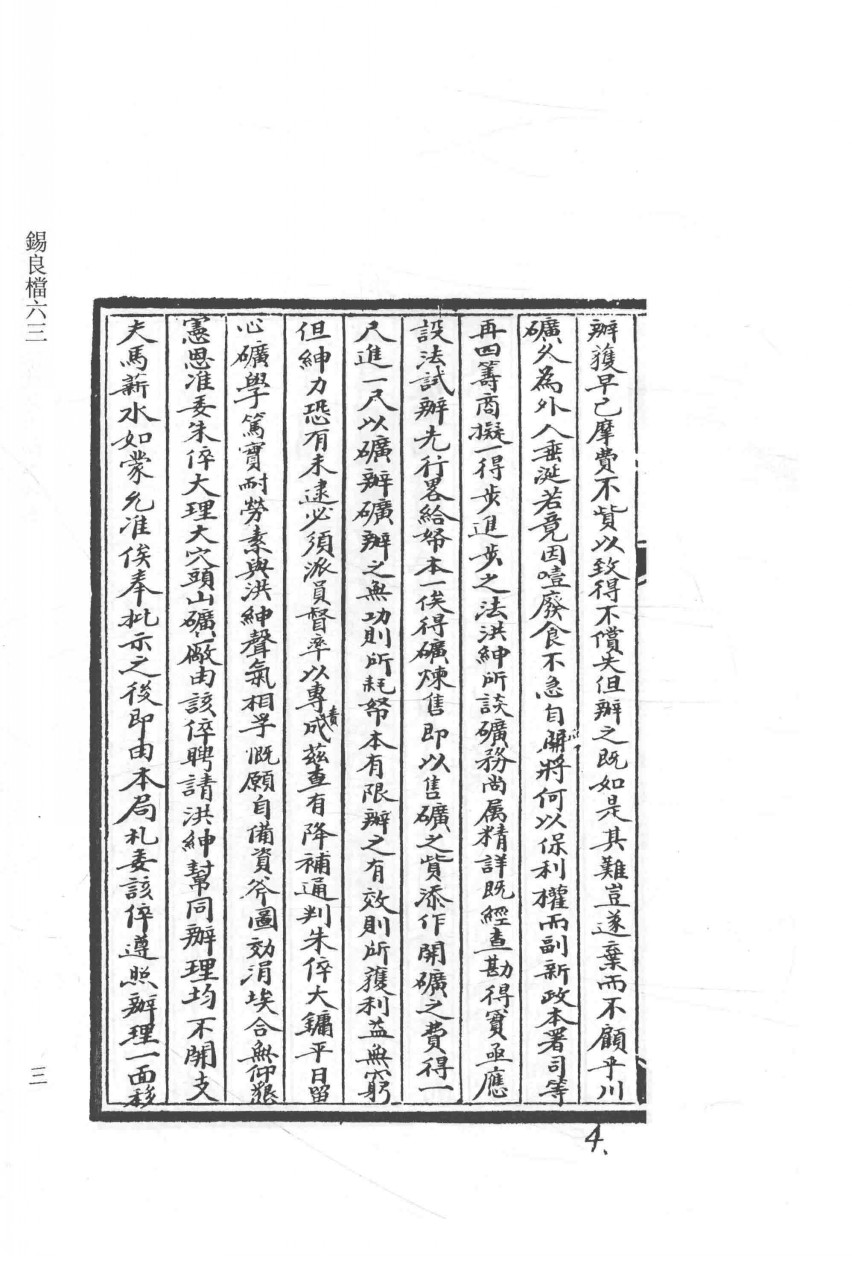 辦獲早已摩費不貲以致得不償失但辦之既如是其難豈遂棄而不顧乎川
礦久為外人垂涎若竟因噎廢食不急自開將何以保利權而副新政本署司等
再四籌商擬一得步進步之法洪紳所談礦務尚屬精詳既經查勘得實亟應
設法試辦先行畧給帑本一俟得礦煉售即以售礦之貲添作開礦之費得一
尺進一尺以礦辦礦辦之無功則所耗帑本有限辦之有效則所獲利益無窮
但紳力恐有未逮必須派員督率以專責成茲查有降補通判朱倅大鏞平日留
心礦學篤實耐勞素與洪紳聲氣相孚慨願自備資斧圖効涓埃合無仰懇
憲恩准委朱倅大理大穴頭山礦廠由該倅聘請洪紳幫同辦理均不開支
夫馬薪水如蒙允准俟奉批示之後即由本局札委該倅遵照辦理一面移
錫良檔六三
三
4、